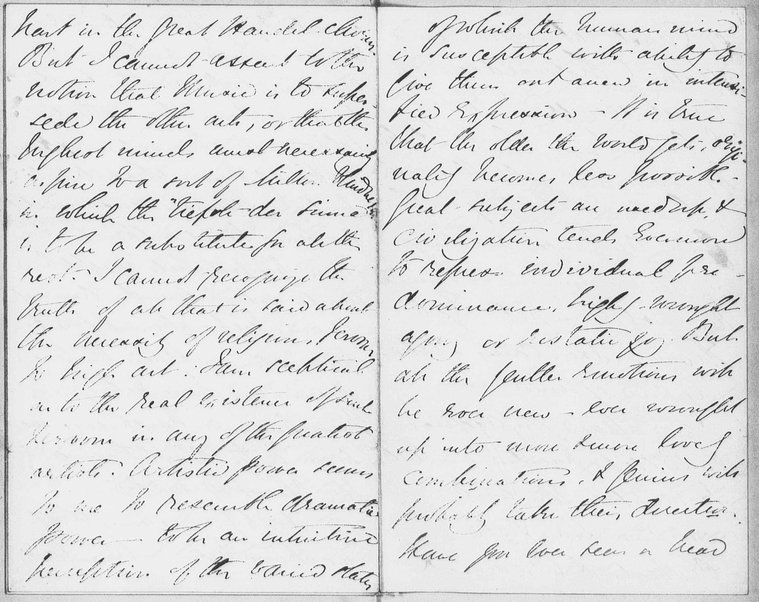 part in the great Handel chorus
But I cannot assent to the
notion that Music is to super-
sede the other arts, or that the
highest minds must necessarily
aspire to a sort of Milton blindness
in which the "tiefste der Sinne"
is to be a substitute for all the
rest. I cannot recognize the
truth of all that is said about
the necessity of religious fervour
to high art. I am sceptical
as to the real existence of such
fervour in any of the greatest
artists. Artistic power seems
to me to resemble dramatic
power — to be an intuitive
perception of the varied states
of which the human mind
is susceptible with ability to
give them out anew in intensi-
fied expression — It is true
that the older the world gets, origi-
nality becomes less possible.
Great subjects are used up, &
civilization tends evermore
to repress individual pre-
dominance, highly-wrought
agony or ecstatic joy. But
all the gentler emotions will
be ever new — ever wrought
up into more & more lovely
combinations, & genius will
probably take their direction.
Have you ever seen a head